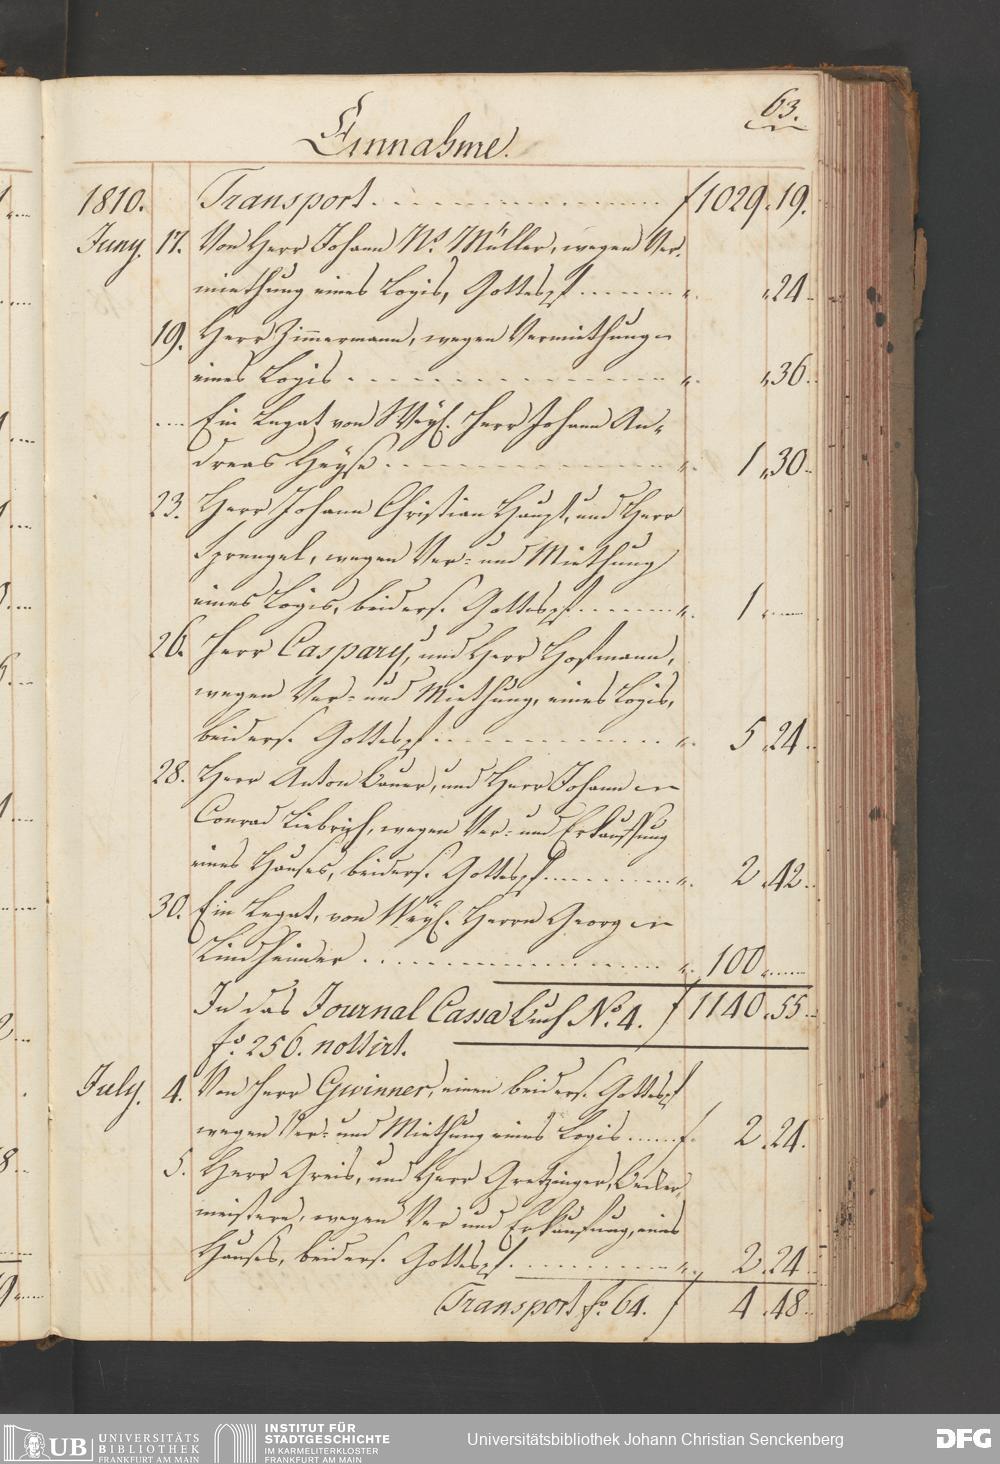 63.
Einnahme.
1810. Transport . . . . . f 1029.19.
Juny. 17. Von Herr Johann Ns. Müller, wegen Ver-
miethung eines Logis, Gottespf. . . . . " " 24.
19. Herr Zimmermann, wegen Vermiethung
eines Logis . . . . . " " 36.
.... Ein Legat von Weyl. Herr Johann An-
dreas Heyse . . . . . " 1 " 30.
23. Herr Johann Christian Haupt, und Herr
Sprengel, wegen Ver- und Miethung
eines Logis, beiders. Gottespf. . . . . " 1 . —
26. Herr Caspary, und Herr Hoffmann,
wegen Ver- und Miethung, eines Logis,
beiders. Gottespf. . . . . " 5 . 24.
28. Herr Anton Bauer, und Herr Johann
Conrad Liebrich, wegen Ver- und Erkauffung
eines Hauses, beiders. Gottespf. . . . . " 2 . 42.
30. Ein Legat, von Weyl. Herrn Georg
Lindheimer . . . . . " 100 . —
In das Journal Cassa Buch No. 4. f 1140 . 55.
fo. 256. nottirt.
July. 4. Von Herr Gwinner, einen beiders. Gottespf
wegen Ver- und Miethung eines Logis . . . . f. 2 . 24.
5. Herr Greis, und Herr Gretzinger, Becker-
meistere, wegen Ver und Erkaufung, eines
Hauses, beiders. Gottespf. . . . . " 2 . 24
Transport fo. 64. f 4 . 48.
UB UNIVERSITÄTS
BIBLIOTHEK
FRANKFURT AM MAIN
INSTITUT FÜR
STADTGESCHICHTE
IM KARMELITERKLOSTER
FRANKFURT AM MAIN
Universitätsbibliothek Johann Christian Senckenberg
DFG